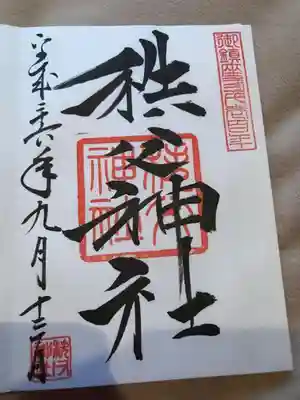 御鎮座
秩父神社
秩父神社
平成二六年九月十三日